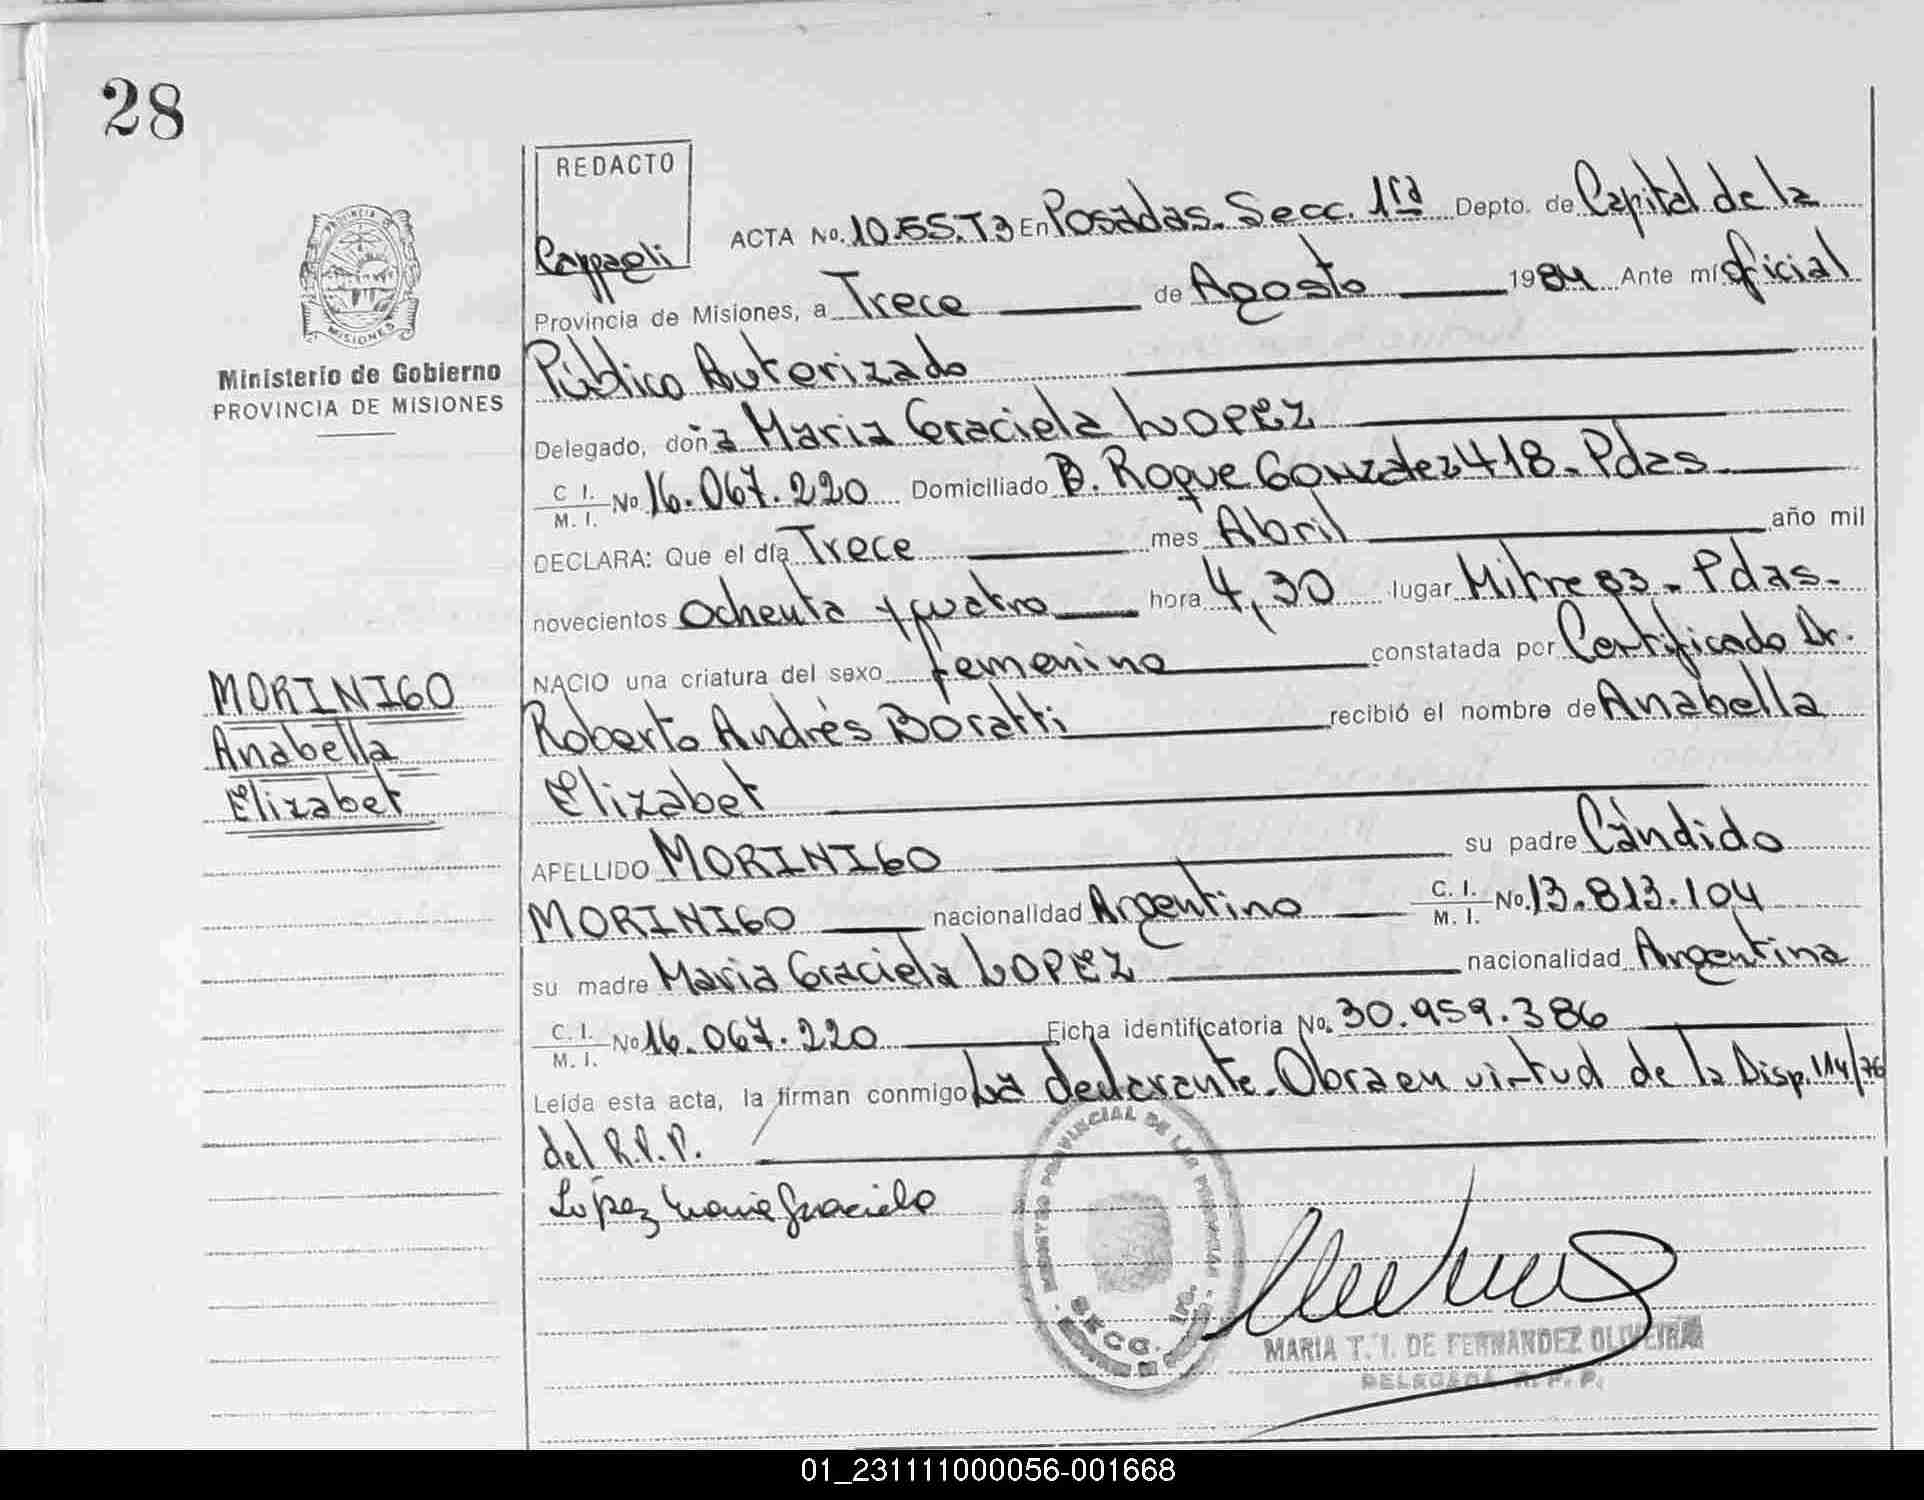 28
REDACTO
Cappaeli
ACTA No. 1055.T3 En Posadas. Secc. 1ra Depto. de Capital de la
Provincia de Misiones, a Trece de Agosto 1984 Ante mí oficial
Público Autorizado
Delegado, doña Maria Graciela LOPEZ
C. I. M. I. No 16.067.220 Domiciliado B. Roque Gonzalez 418. Pdas
DECLARA: Que el día Trece mes Abril año mil
novecientos Ochenta y cuatro hora 4,30 lugar Mitre 83. Pdas.
NACIO una criatura del sexo femenino constatada por Certificado Dr.
Roberto Andrés Boratti recibió el nombre de Anabella
Elizabet
APELLIDO MORINIGO su padre Cándido
MORINIGO nacionalidad Argentino C. I. M. I. No. 13.813.104
su madre Maria Graciela LOPEZ nacionalidad Argentina
C. I. M. I. No 16.067.220 Ficha identificatoria No. 30.959.386
Leída esta acta, la firman conmigo La declarante. Obra en virtud de la Disp. 114/76
del R.P.P.
López Maria Graciela
PROVINCIA DE MISIONES
Ministerio de Gobierno
PROVINCIA DE MISIONES
MORINIGO
Anabella
Elizabet
REGISTRO PROVINCIAL DE LAS PERSONAS
SECC. 1ra.
MARIA T. I. DE FERNANDEZ OLIVEIRA
DELEGADA R. P. P.
01_231111000056-001668